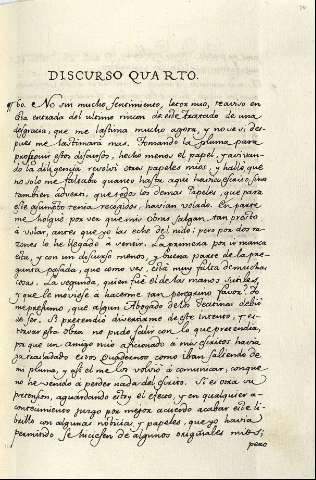 DISCURSO QUARTO.
¶ 60. No sin mucho sentimiento, letor mio, te aviso en
esta entrada del ultimo rincon de este tractado de una
desgracia, que me lastima mucho agora, y no se si, des
pues me lastimara mas. Tomando la pluma para
proseguir estos discursos, hecho menos el papel, y avivan
do la diligencia revolvi otros papeles mios, y hallè que
no solo me faltaba quanto hasta aqui havia escrito, sino
tambien adverti, que todos los demas Papeles, que para
este assumto tenia recogidos, havian volado. En parte
me holguè por ver que mis obras salgan tan presto
à volar, antes que yo las eche del nido; pero por dos ra
zones lo he llegado à sentir. La primera por ir manca
esta, y con un discurso menos, y buena parte de la pre
gunta passada, que como ves està muy falta de muchas
cosas. La segunda, quien fuè el de las manos sutiles,
y que le moviesse à hacerme tan peregrino favor? Yo
me presumo, que algun Abogado de las Doctrinas debiò
de ser. Si pretendiò divertirme de este intento, y es
torvar esta obra no pudo salir con lo que pretendia,
porque un amigo mio aficionado à mis escritos havia
ya trasladado estos Quadernos como iban saliendo de
mi pluma, y assi el me los volviò à comunicar, con que
no he venido à perder nada del escrito. Si es otra su
pretension, aguardando estoy el efecto, y en qualquier a
contecimiento juzgo por mejor acuerdo acabar este li
brillo con algunas noticias y papeles, que yo havia
permitido se sacassen de algunos originales mios;
pero